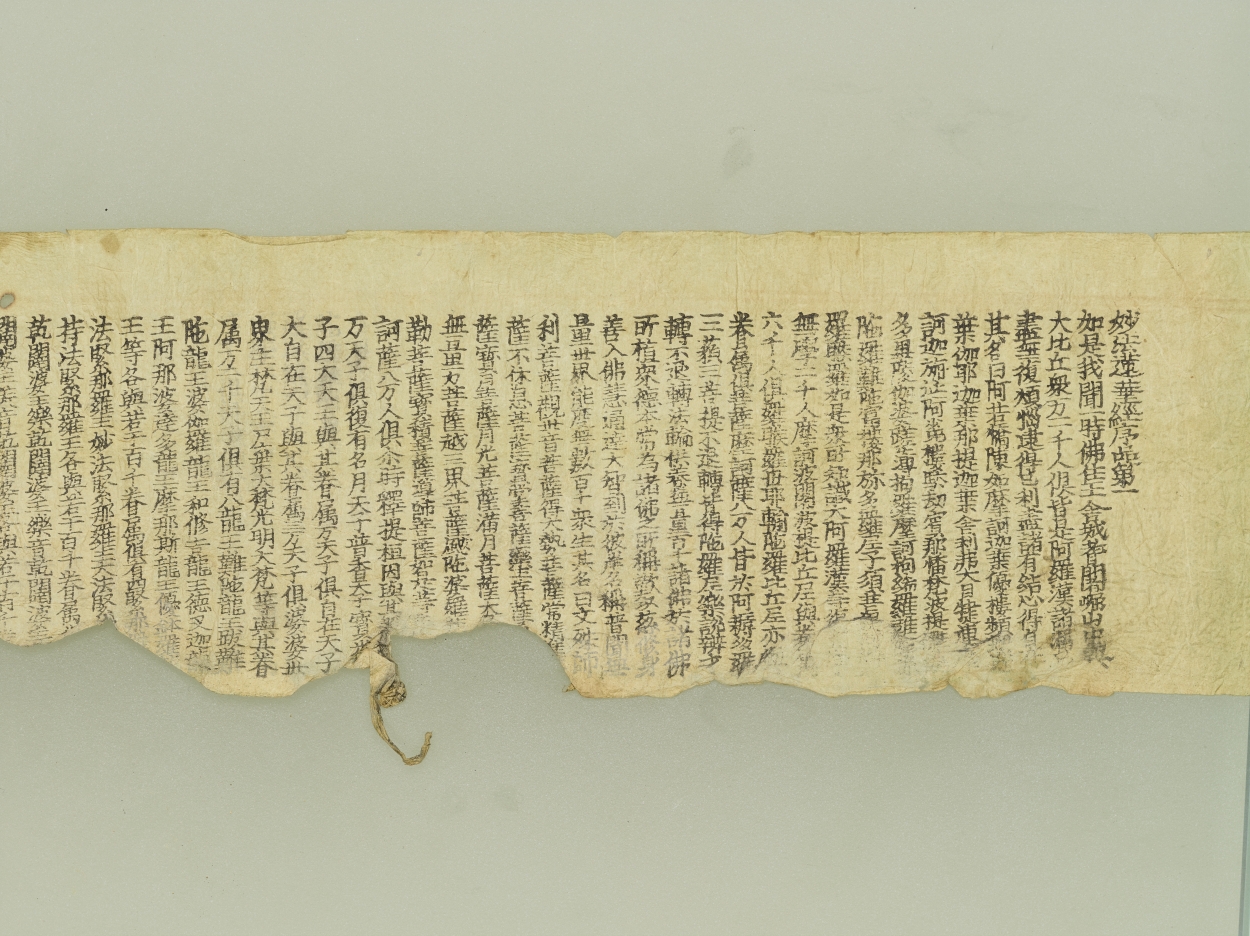 妙法蓮華經序品第一
如是我聞一時佛住王舍城耆闍崛山中與
大比丘衆万二千人俱皆是阿羅漢諸漏
盡無復煩惱逮得已利盡諸有結心得自
其名曰阿若憍陳如摩訶迦葉優樓頻
葉伽耶迦葉那提迦葉舍利弗大目揵連
訶迦旃延阿㝹樓馱劫賓那憍梵波提
多畢陵伽婆蹉薄拘羅摩訶拘絺羅難
陀孫陀羅難陀富樓那弥多羅尼子須菩
羅睺羅如是衆所知識大阿羅漢等
無學二千人摩訶波闍波提比丘尼與眷
六千人俱羅睺羅母耶輸陀羅比丘尼亦
眷屬俱菩薩摩訶薩八万人皆於阿耨多羅
三藐三菩提不退轉皆得陀羅尼樂說辯才
轉不退轉法輪供養無量百千諸佛於諸佛
所植衆德本常為諸佛之所稱歎以慈修身
善入佛慧通達大智到於彼岸名稱普聞無
量世界能度無數百千衆生其名曰文殊師
利菩薩觀世音菩薩得大勢菩薩常精進
薩不休息菩薩寶掌菩薩藥王菩薩
薩寶月菩薩月光菩薩滿月菩薩大
無量力菩薩越三界菩薩颰陀婆羅
勒菩薩寶積菩薩導師菩薩如是等
訶薩八万人俱尒時釋提桓因與其
万天子俱復有名月天子普香天子寶
子四大天王與其眷屬万天子俱自在天子
大自在天子與其眷屬三万天子俱娑婆世
界主梵天王尸棄大梵光明大梵等與其眷
屬万二千天子俱有八龍王難陀龍王跋難
陀龍王娑伽羅龍王和修吉龍王德叉迦
王阿那婆達多龍王摩那斯龍王優鉢羅
王等各與若干百千眷屬俱有四緊那
法緊那羅王妙法緊那羅王大法緊
持法緊那羅王各與若干百千眷屬
乾闥婆王樂乾闥婆王樂音乾闥婆